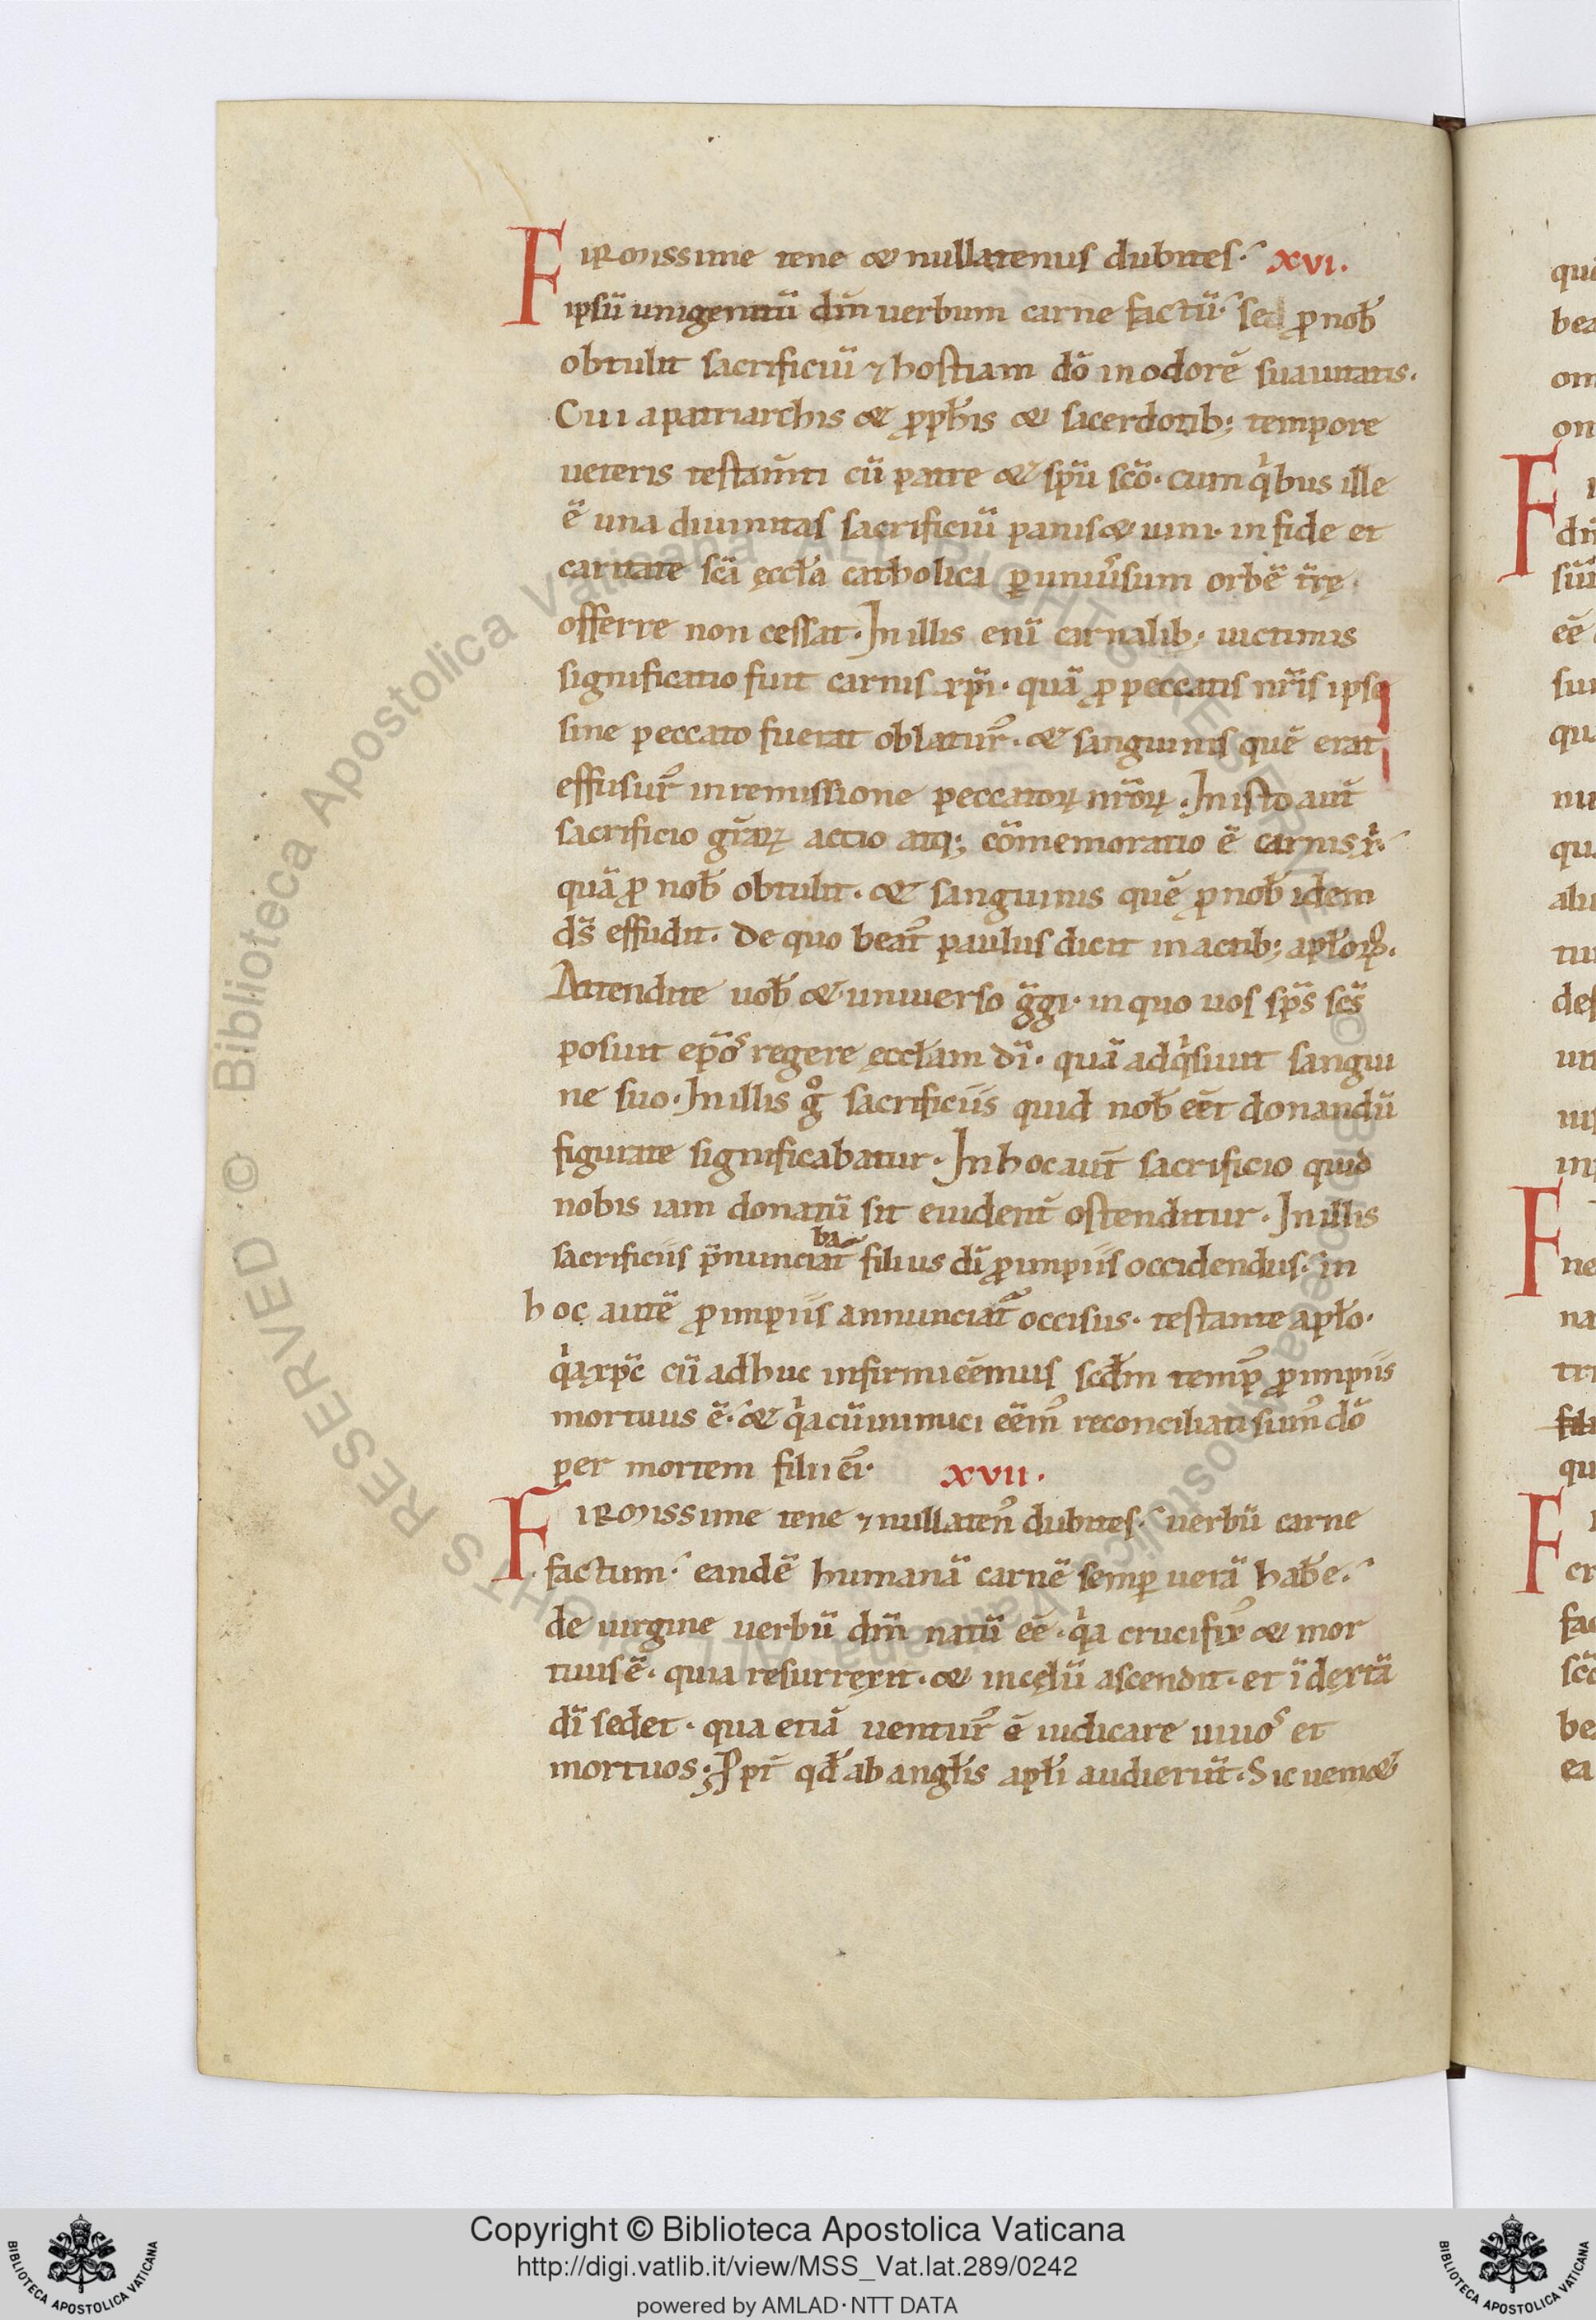 FIRMISSIME tene & nullatenus dubites. XVI.
ipsū unigenitū dm̄ uerbum carne factū. sed ꝓ nob̄
obtulit sacrificiū ⁊ hostiam dō in odorē suauitatis.
Cui a patriarchis & ꝓph̄is & sacerdotib; tempore
ueteris testam̄ti cū patre & spū scō. cum qͥbus illi
ē una diuinitas sacrificiū panis & uini. in fide et
caritate scā ęccl̄a catholica ꝑ uniūsum orbē tr̄ę
offerre non cessat. In illis enī carnalib; uictimis
significatio fuit carnis xp̄i. quā ꝓ peccatis nr̄is ipse
sine peccato fuerat oblatur᾽. & sanguinis quē erat
effusur᾽ in remissione peccatoꝝ nr̄oꝝ. In isto aut̄
sacrificio gr̄aꝝ actio atq; cōmemoratio ē carnis x̄.
quā ꝓ nob̄ obtulit. & sanguinis quē ꝓ nob̄ idem
ds̄ effudit. De quo beat᾽ paulus dicit in actib; apl̄oꝝ.
Attendite uob̄ & uniuerso g̈gi. in quo uos sp̄s sc̄s
posuit ep̄os regere ęccl̄am dī. quā adqͥsiuit sangui
ne suo. In illis gͦ sacrificiis quid nob̄ eēt donandū
figurate significabatur. In hoc aut̄ sacrificio quid
nobis iam donatū sit euident̄ ostenditur. In illis
ba
sacrificiis p̄nunciat᷑ filius dī ꝓ impiis occidendus. in
hoc autē ꝓ impiis annunciat᷑ occisus. testante apl̄o.
qͥa xp̄c cū adhuc infirmi eēmus scd̄m temp᾽ ꝓ impiis
mortuus ē. & qͥa cū inimici eēm᾽ reconciliati sum᾽ dō
per mortem filii eī. XVII.
FIRMISSIME tene ⁊ nullaten᾽ dubites. uerbū carne
factum. eandē humanā carnē semꝑ uerā hab̄e.
de uirgine uerbū dm̄ natū eē. qͣ crucifix᾽ & mor
tuus ē. qua resurrexit. & in cęlū ascendit. et ī dextā
dī sedet. qua etiā uentur᾽ ē iudicare uiuos et
mortuos. Ppt̄ qd̄ ab angl̄is apl̄i audierūt. Sic ueni&
Copyright © Biblioteca Apostolica Vaticana
http://digi.vatlib.it/view/MSS_Vat.lat.289/0242
powered by AMLAD·NTT DATA